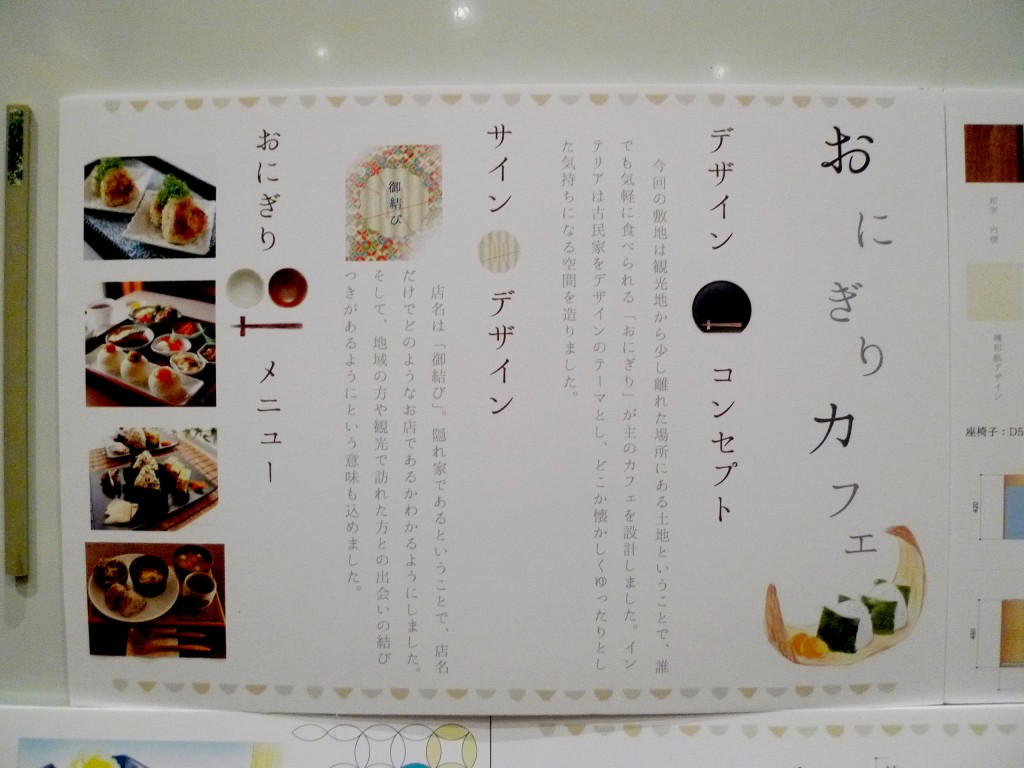 おにぎりカフェ
デザイン コンセプト
今回の敷地は観光地から少し離れた場所にある土地ということで、誰
でも気軽に食べられる「おにぎり」が主のカフェを設計しました。イン
テリアは古民家をデザインのテーマとし、どこか懐かしくゆったりとし
た気持ちになる空間を造りました。
サイン デザイン
御結び
店名は「御結び」。隠れ家であるということで、店名
だけでどのようなお店であるかわかるようにしました。
そして、地域の方や観光で訪れた方との出会いの結び
つきがあるようにという意味も込めました。
おにぎり メニュー
座椅子:D5